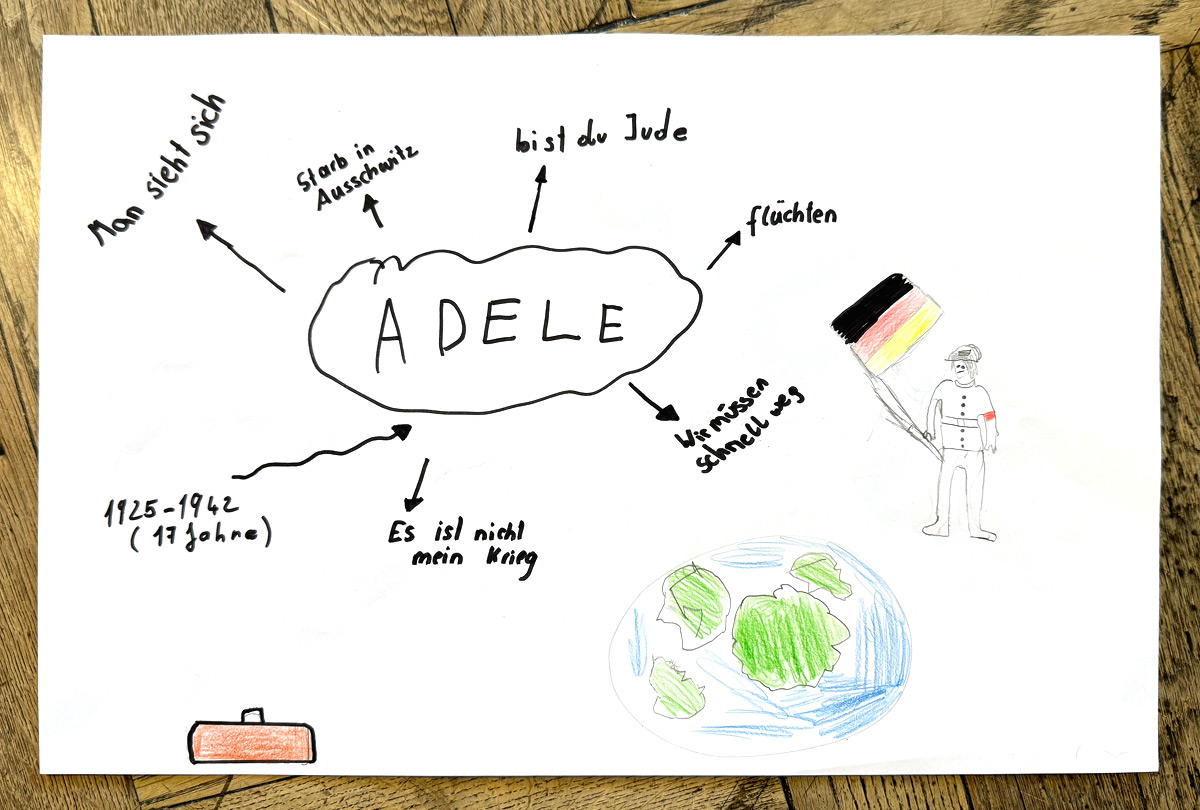 Man sieht sich
Starb in
Ausschwitz
bist du Jude
flüchten
ADELE
Wir müssen
schnell weg
1925-1942
(17 Jahre)
Es ist nicht
mein Krieg